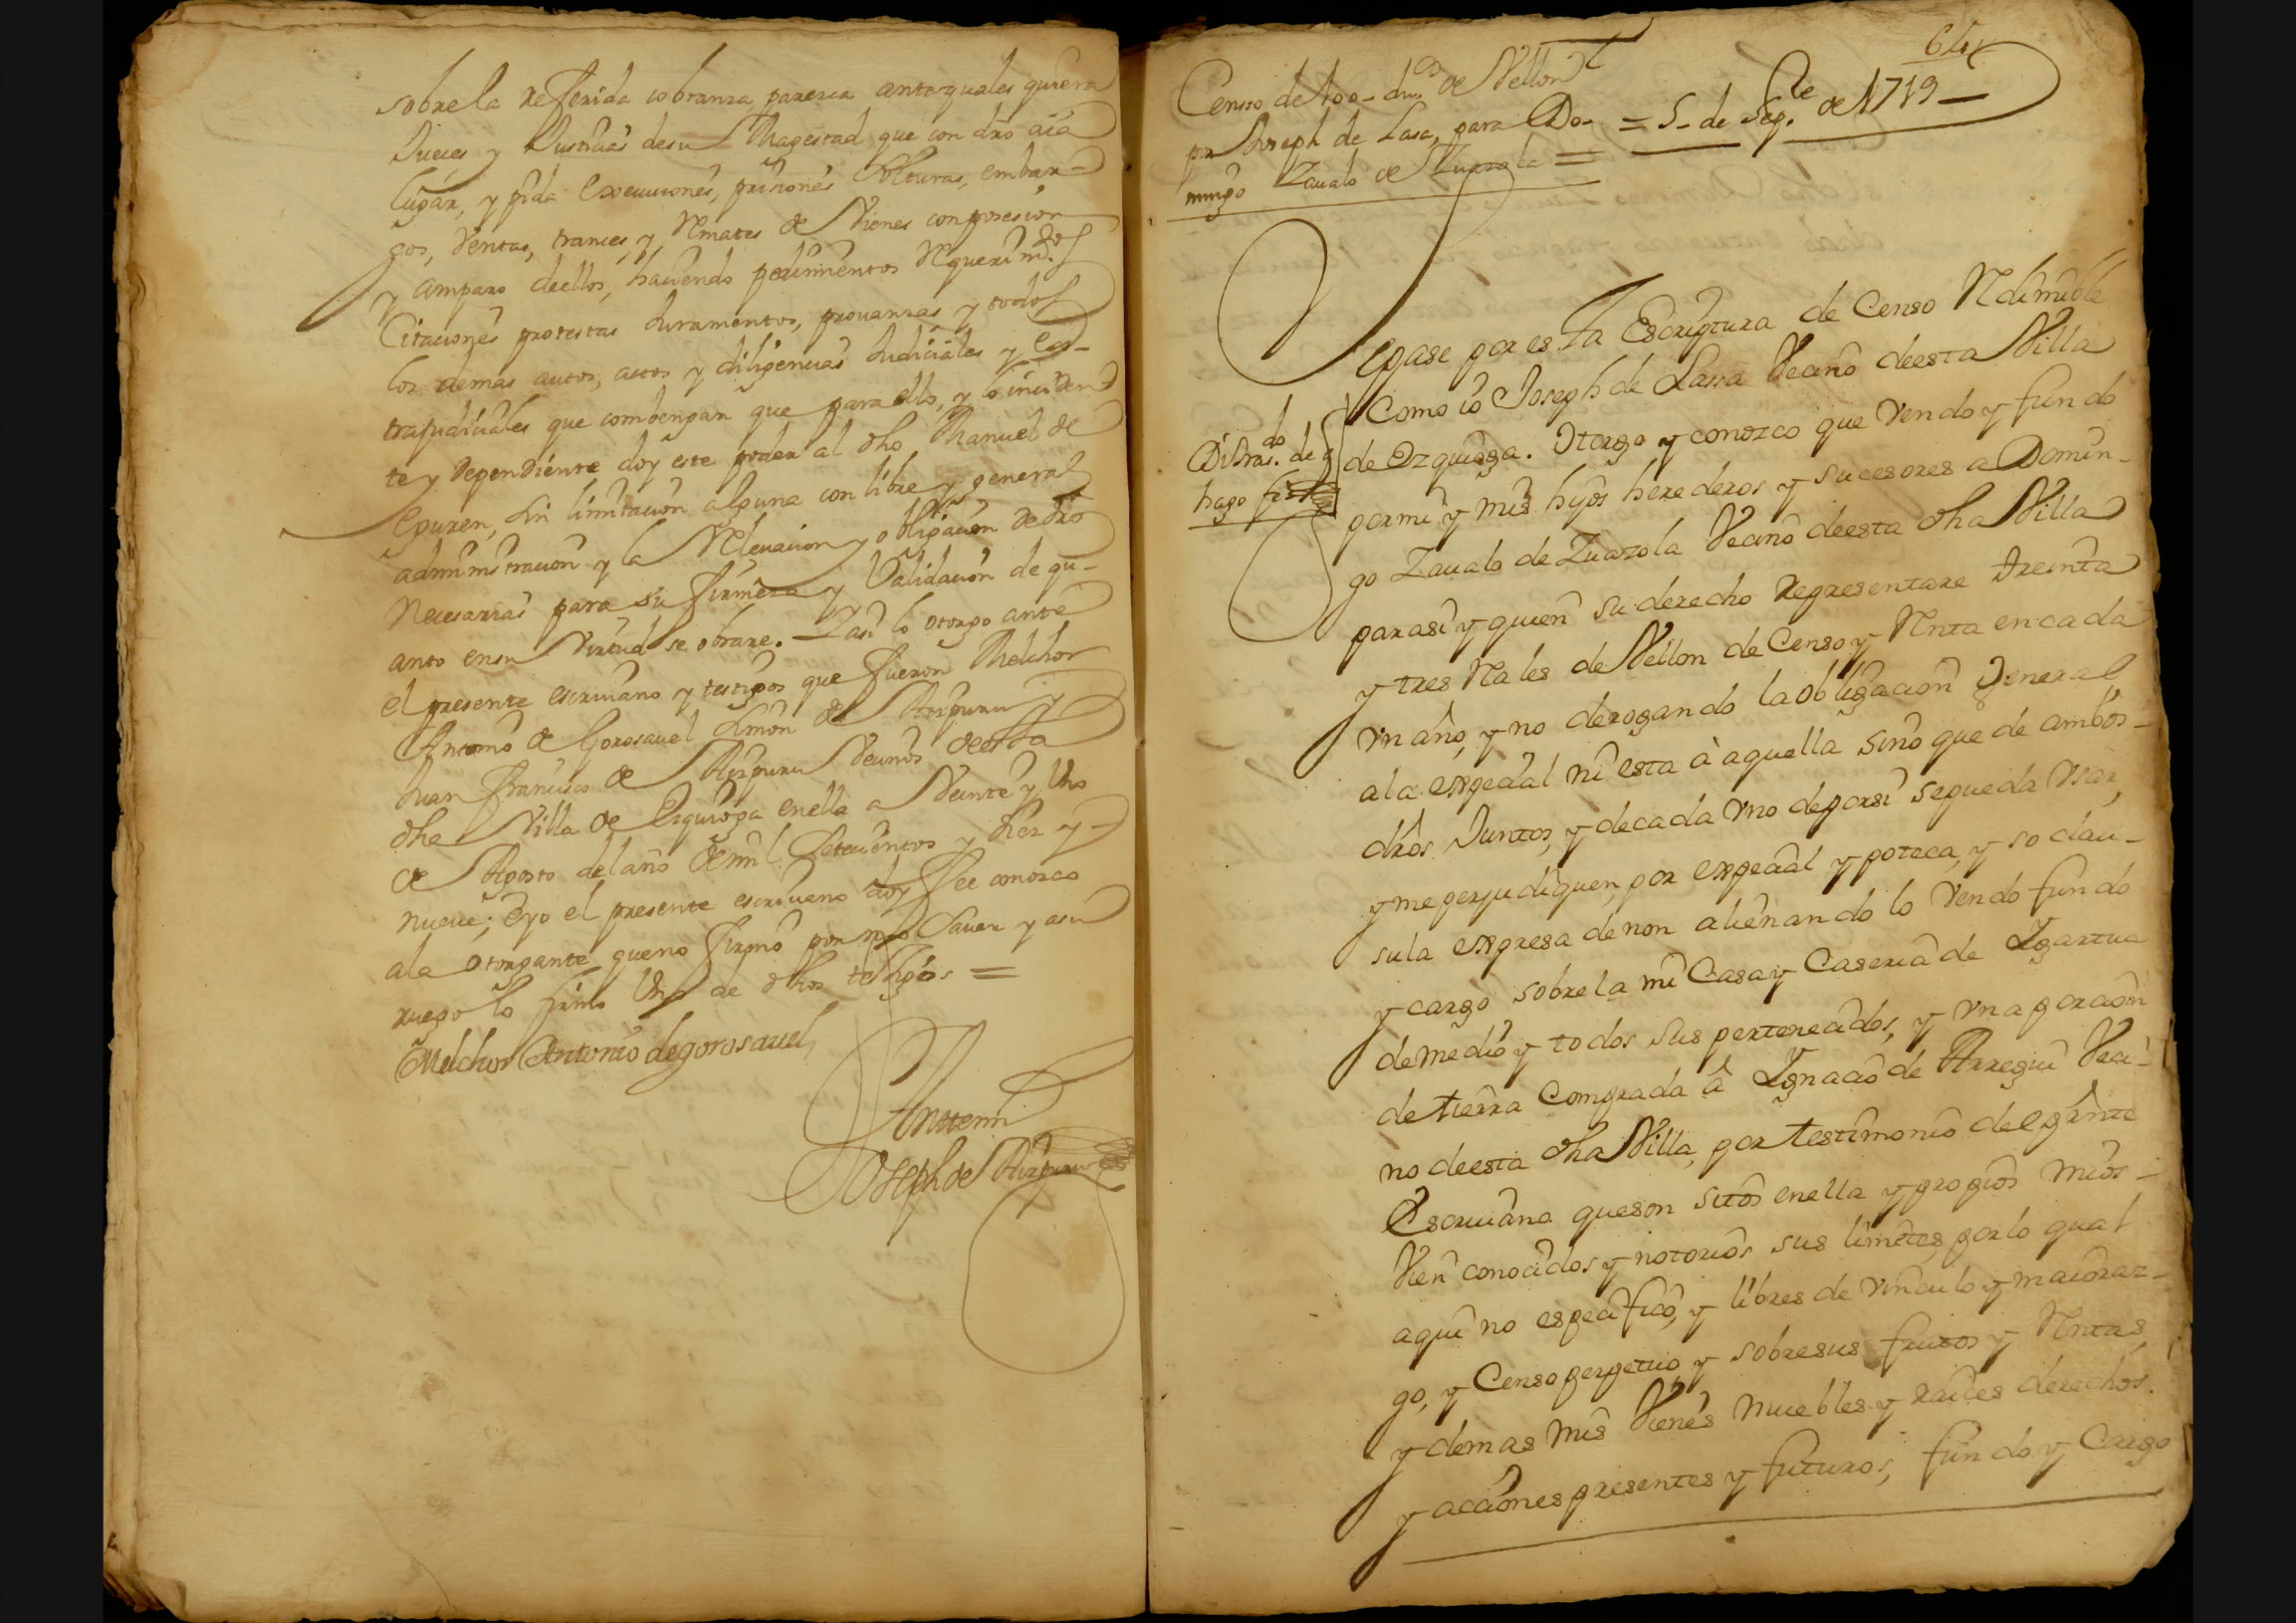 sobre la referida cobranza, parezca ante quales quiera
Jueces y Justicias de su Magestad que con dro aia
lugar, y pida execuciones, prisiones solturas, embar-
gos, Ventas, trances, y Remates de Vienes con posesion
y amparo de ellos, haciendo pedimientos Requerim.tos
Citaciones protestas Juramentos, provanzas y todos
los demas autos, actos y diligencias Judiciales y ex-
trajudiciales que combengan que para ello, y lo inciden-
te y dependiente doy este poder al dho Manuel de
Eguren, sin limitacion alguna con libre y general
administracion y la Relevacion y obligacion de dro
necesarias para su firmeza y Validacion de qu-
anto en su Virtud se obrare. Y asi lo otorgo ante
el presente escrivano y testigos que fueron Melchor
Antonio de Gorosavel Simon de Aizpuru y
Juan Francisco de Aizpuru Vecinos de esta
dha Villa de Ezquioga en ella a Veinte y Uno
de Agosto del año de mil Setecientos y diez y
nueve; E yo el presente escrivano doy fee conozco
a la otorgante que no firmo por no Saver y a su
ruego lo firmo Uno de dhos testigos =
Melchor Antonio de gorosavel
Ante mi
Joseph de Aizpuru
Censo de 1100 - du.os de Vellon
por Joseph de Lasa, para Do-
mingo Zavalo de Zuazola =
= 5 - de Sep.re de 1719 -
Sepase por esta Escriptura de Censo Redimible
Como io Joseph de Lassa Vecino de esta Villa
de Ezquioga. Otorgo y conozco que Vendo y fundo
por mi y mis hijos herederos y sucesores a Domin-
go Zavalo de Zuazola Vecino de esta dha Villa
para si y quien su derecho Representare treinta
y tres Reales de Vellon de Censo y Renta en cada
Vn año, y no derogando la obligacion General
a la expecial ni esta à aquella sino que de ambos
dros Juntos, y de cada Vno de por si se pueda Vsar,
y me perjudiquen, por expecial ypoteca, y so clau-
sula expresa de non alienando lo Vendo fundo
y cargo sobre la mi Casa y Caseria de Igartua
de medio y todos sus pertenecidos, y Vna porcion
de tierra Comprada à Ignacio de Arregui Veci-
no de esta dha Villa, por testimonio del presnte
Escrivano que son sitos en ella y propios mios
Vien conocidos y notorios sus limites por lo qual
aqui no especifico, y libres de Vinculo y maioraz-
go, y Censo perpetuo, y sobre sus frutos y Rentas,
y demas mis Vienes muebles y raices derechos.
y acciones presentes y futuros, fundo y Cargo
hago fe